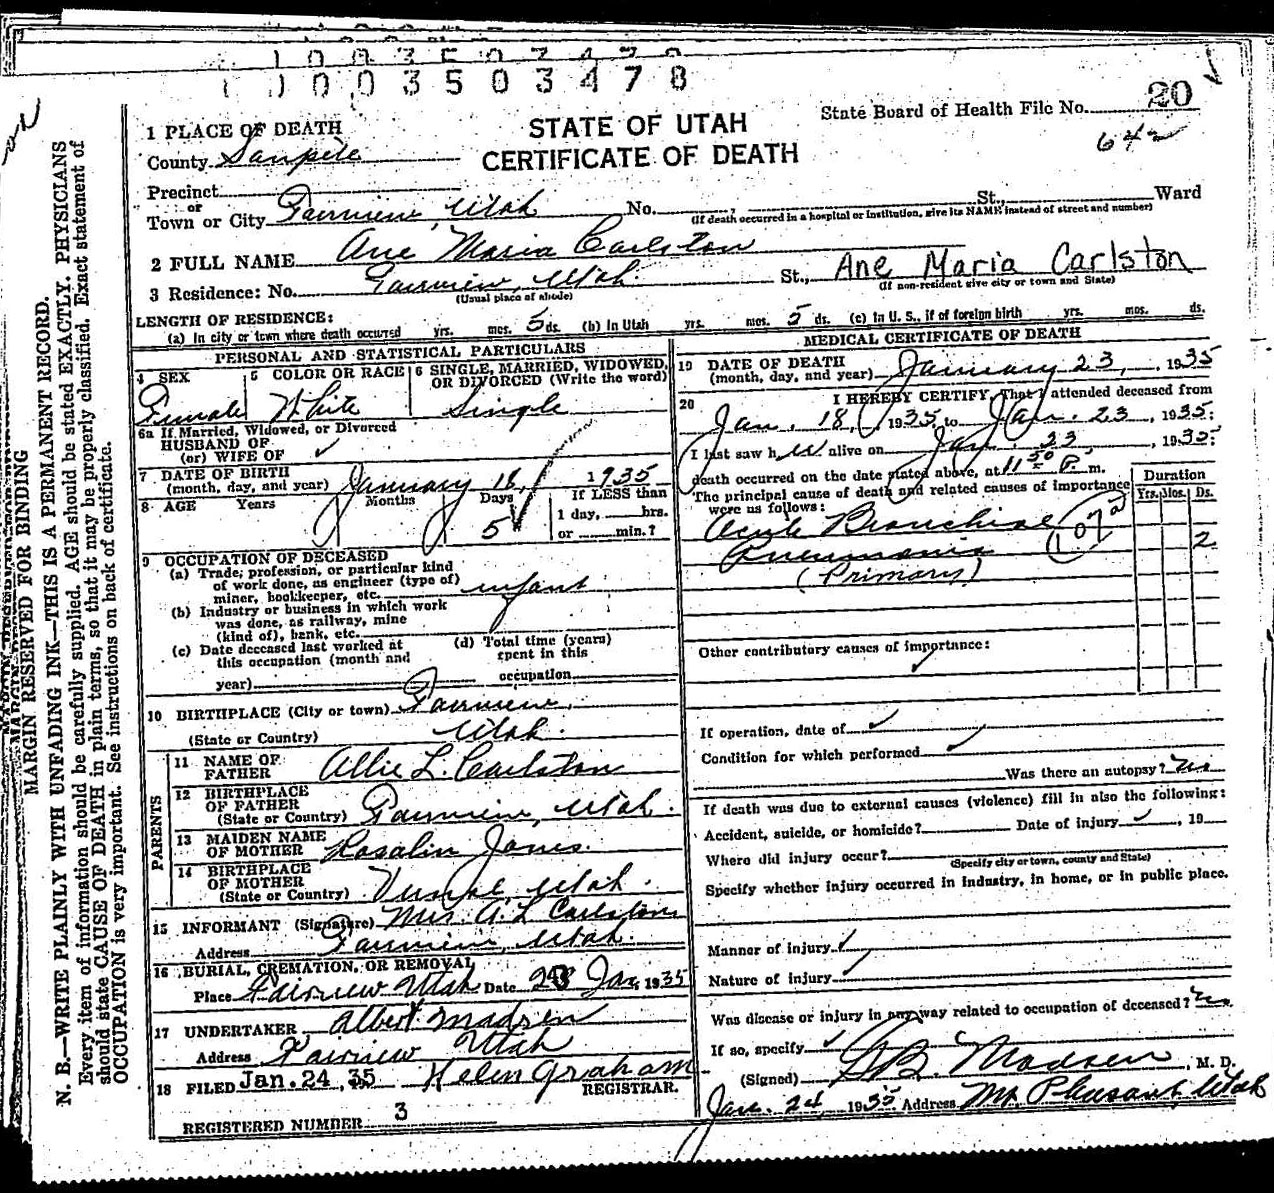 1003503478
State Board of Health File No. 20
642
STATE OF UTAH
CERTIFICATE OF DEATH
1 PLACE OF DEATH
County Sanpete
Precinct
or
Town or City Fairview, Utah No. St., Ward
(If death occurred in a hospital or institution, give its NAME instead of street and number)
2 FULL NAME Ane Maria Carlston
3 Residence: No. Fairview, Utah. St., Ane Maria Carlston
(Usual place of abode) (If non-resident give city or town and State)
LENGTH OF RESIDENCE:
(a) In city or town where death occurred yrs. mos. 5 ds. (b) In Utah yrs. mos. 5 ds. (c) In U. S., if of foreign birth yrs. mos. ds.
PERSONAL AND STATISTICAL PARTICULARS
4 SEX 5 COLOR OR RACE 6 SINGLE, MARRIED, WIDOWED, OR DIVORCED (Write the word)
Female White Single
6a If Married, Widowed, or Divorced
HUSBAND OF
(or) WIFE OF
7 DATE OF BIRTH
(month, day, and year) January 18, 1935
8 AGE Years Months Days If LESS than
5 1 day, hrs.
or min.?
9 OCCUPATION OF DECEASED
(a) Trade, profession, or particular kind
of work done, as engineer (type of)
miner, bookkeeper, etc. infant
(b) Industry or business in which work
was done, as railway, mine
(kind of), bank, etc.
(c) Date deceased last worked at
this occupation (month and
year)
(d) Total time (years)
spent in this
occupation
10 BIRTHPLACE (City or town) Fairview,
(State or Country) Utah.
PARENTS
11 NAME OF
FATHER Allie L. Carlston
12 BIRTHPLACE
OF FATHER
(State or Country) Fairview, Utah.
13 MAIDEN NAME
OF MOTHER Rosalin Jones.
14 BIRTHPLACE
OF MOTHER
(State or Country) Vernal, Utah.
15 INFORMANT (Signature) Mrs. A. L. Carlston
Address Fairview, Utah.
16 BURIAL, CREMATION, OR REMOVAL
Place Fairview Utah Date Jan, 1935
17 UNDERTAKER Albert Madsen
Address Fairview Utah
18 FILED Jan. 24, 35 Helen Graham
REGISTRAR.
REGISTERED NUMBER 3
MEDICAL CERTIFICATE OF DEATH
19 DATE OF DEATH
(month, day, and year) January 23, 1935
20 I HEREBY CERTIFY, That I attended deceased from
Jan. 18, 1935 to Jan. 23, 1935;
I last saw her alive on Jan 23, 1935;
death occurred on the date stated above, at 11 50 P. m.
The principal cause of death and related causes of importance
were as follows:
Duration
Yrs. Mos. Ds.
Acute Bronchial 107a
Pneumonia 2
(Primary)
Other contributory causes of importance:
If operation, date of
Condition for which performed
Was there an autopsy? no
If death was due to external causes (violence) fill in also the following:
Accident, suicide, or homicide? Date of injury , 19
Where did injury occur?
(Specify city or town, county and State)
Specify whether injury occurred in industry, in home, or in public place.
Manner of injury
Nature of injury
Was disease or injury in any way related to occupation of deceased? no
If so, specify
(Signed) Madsen, M. D.
Jan. 24, 1935 Address Mt. Pleasant, Utah
MARGIN RESERVED FOR BINDING
N. B.—WRITE PLAINLY WITH UNFADING INK—THIS IS A PERMANENT RECORD.
Every item of information should be carefully supplied. AGE should be stated EXACTLY. PHYSICIANS
should state CAUSE OF DEATH in plain terms, so that it may be properly classified. Exact statement of
OCCUPATION is very important. See instructions on back of certificate.